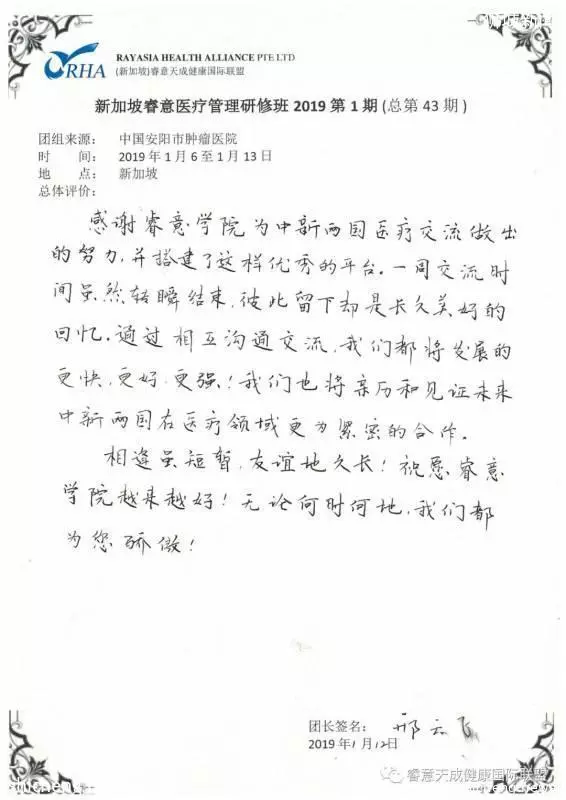 RHA
RAYASIA HEALTH ALLIANCE PTE LTD
(新加坡)睿意天成健康国际联盟
新加坡睿意医疗管理研修班 2019 第 1 期 (总第 43 期 )
团组来源： 中国安阳市肿瘤医院
时 间： 2019 年 1 月 6 至 1 月 13 日
地 点： 新加坡
总体评价：
感谢睿意学院为中新两国医疗交流做出
的努力,并搭建了这样优秀的平台。一周交流时
间虽然转瞬结束,彼此留下却是长久美好的
回忆。通过相互沟通交流,我们都将发展的
更快,更好,更强！我们也将亲历和见证未来
中新两国在医疗领域更为紧密的合作。
相逢虽短暂,友谊地久长！祝愿睿意
学院越来越好！无论何时何地,我们都
为您骄傲！
团长签名： 邢云飞
2019 年1月12日
睿意天成健康国际联盟